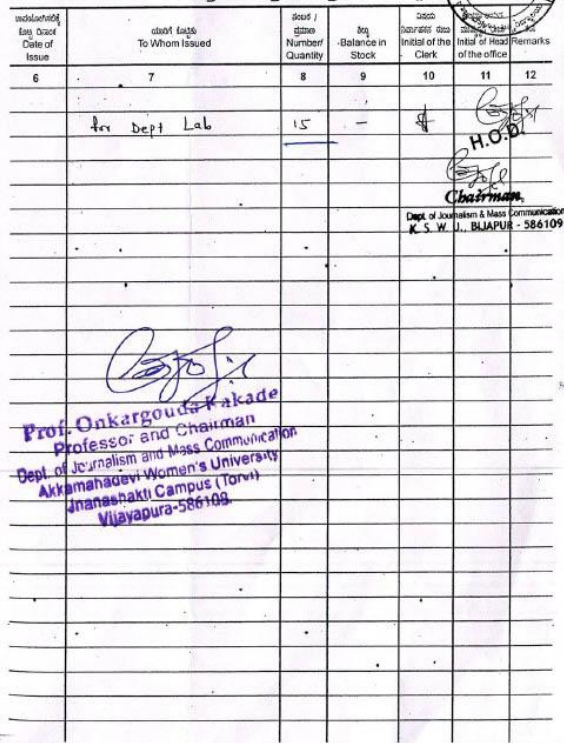 ಯಾರಿಗೆ ಕೊಟ್ಟಿತು
Date of Issue
To Whom Issued
Number/ Quantity
-Balance in Stock
Initial of the Clerk
Initial of Head of the office
Remarks
6 7 8 9 10 11 12
for Dept Lab 15 –
H.O.D.
Chairman,
Dept. of Journalism & Mass Communication
K. S. W. U., BIJAPUR - 586109
Prof. Onkargouda Kakade
Professor and Chairman
Dept. of Journalism and Mass Communication
Akkamahadevi Women's University
Jnanashakti Campus (Torvi)
Vijayapura-586108.